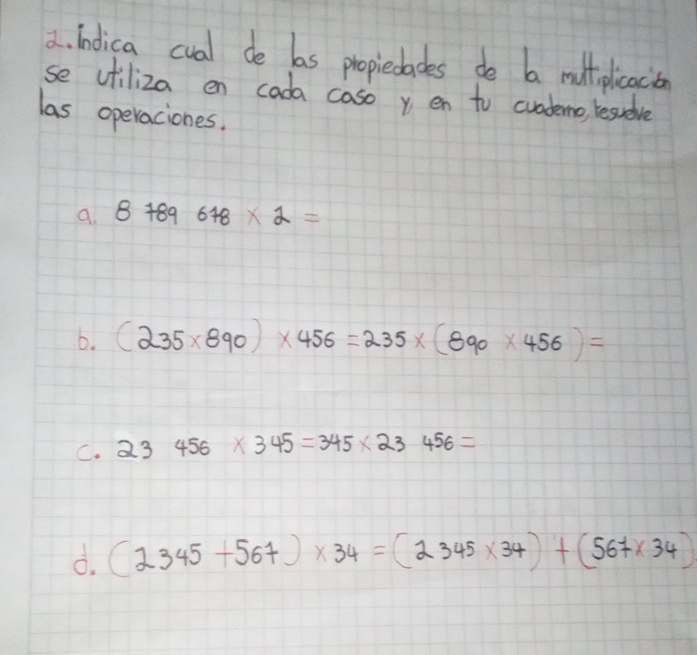 2. indica cual de las propiedades de la multiplicación
se utiliza en cada caso y, en tu cuaderno, resuelve
las operaciones.
a. 8 789 678 × 2 =
b. (235 × 890) × 456 = 235 × (890 × 456) =
c. 23 456 × 345 = 345 × 23 456 =
d. (2 345 + 567) × 34 = (2 345 × 34) + (567 × 34)